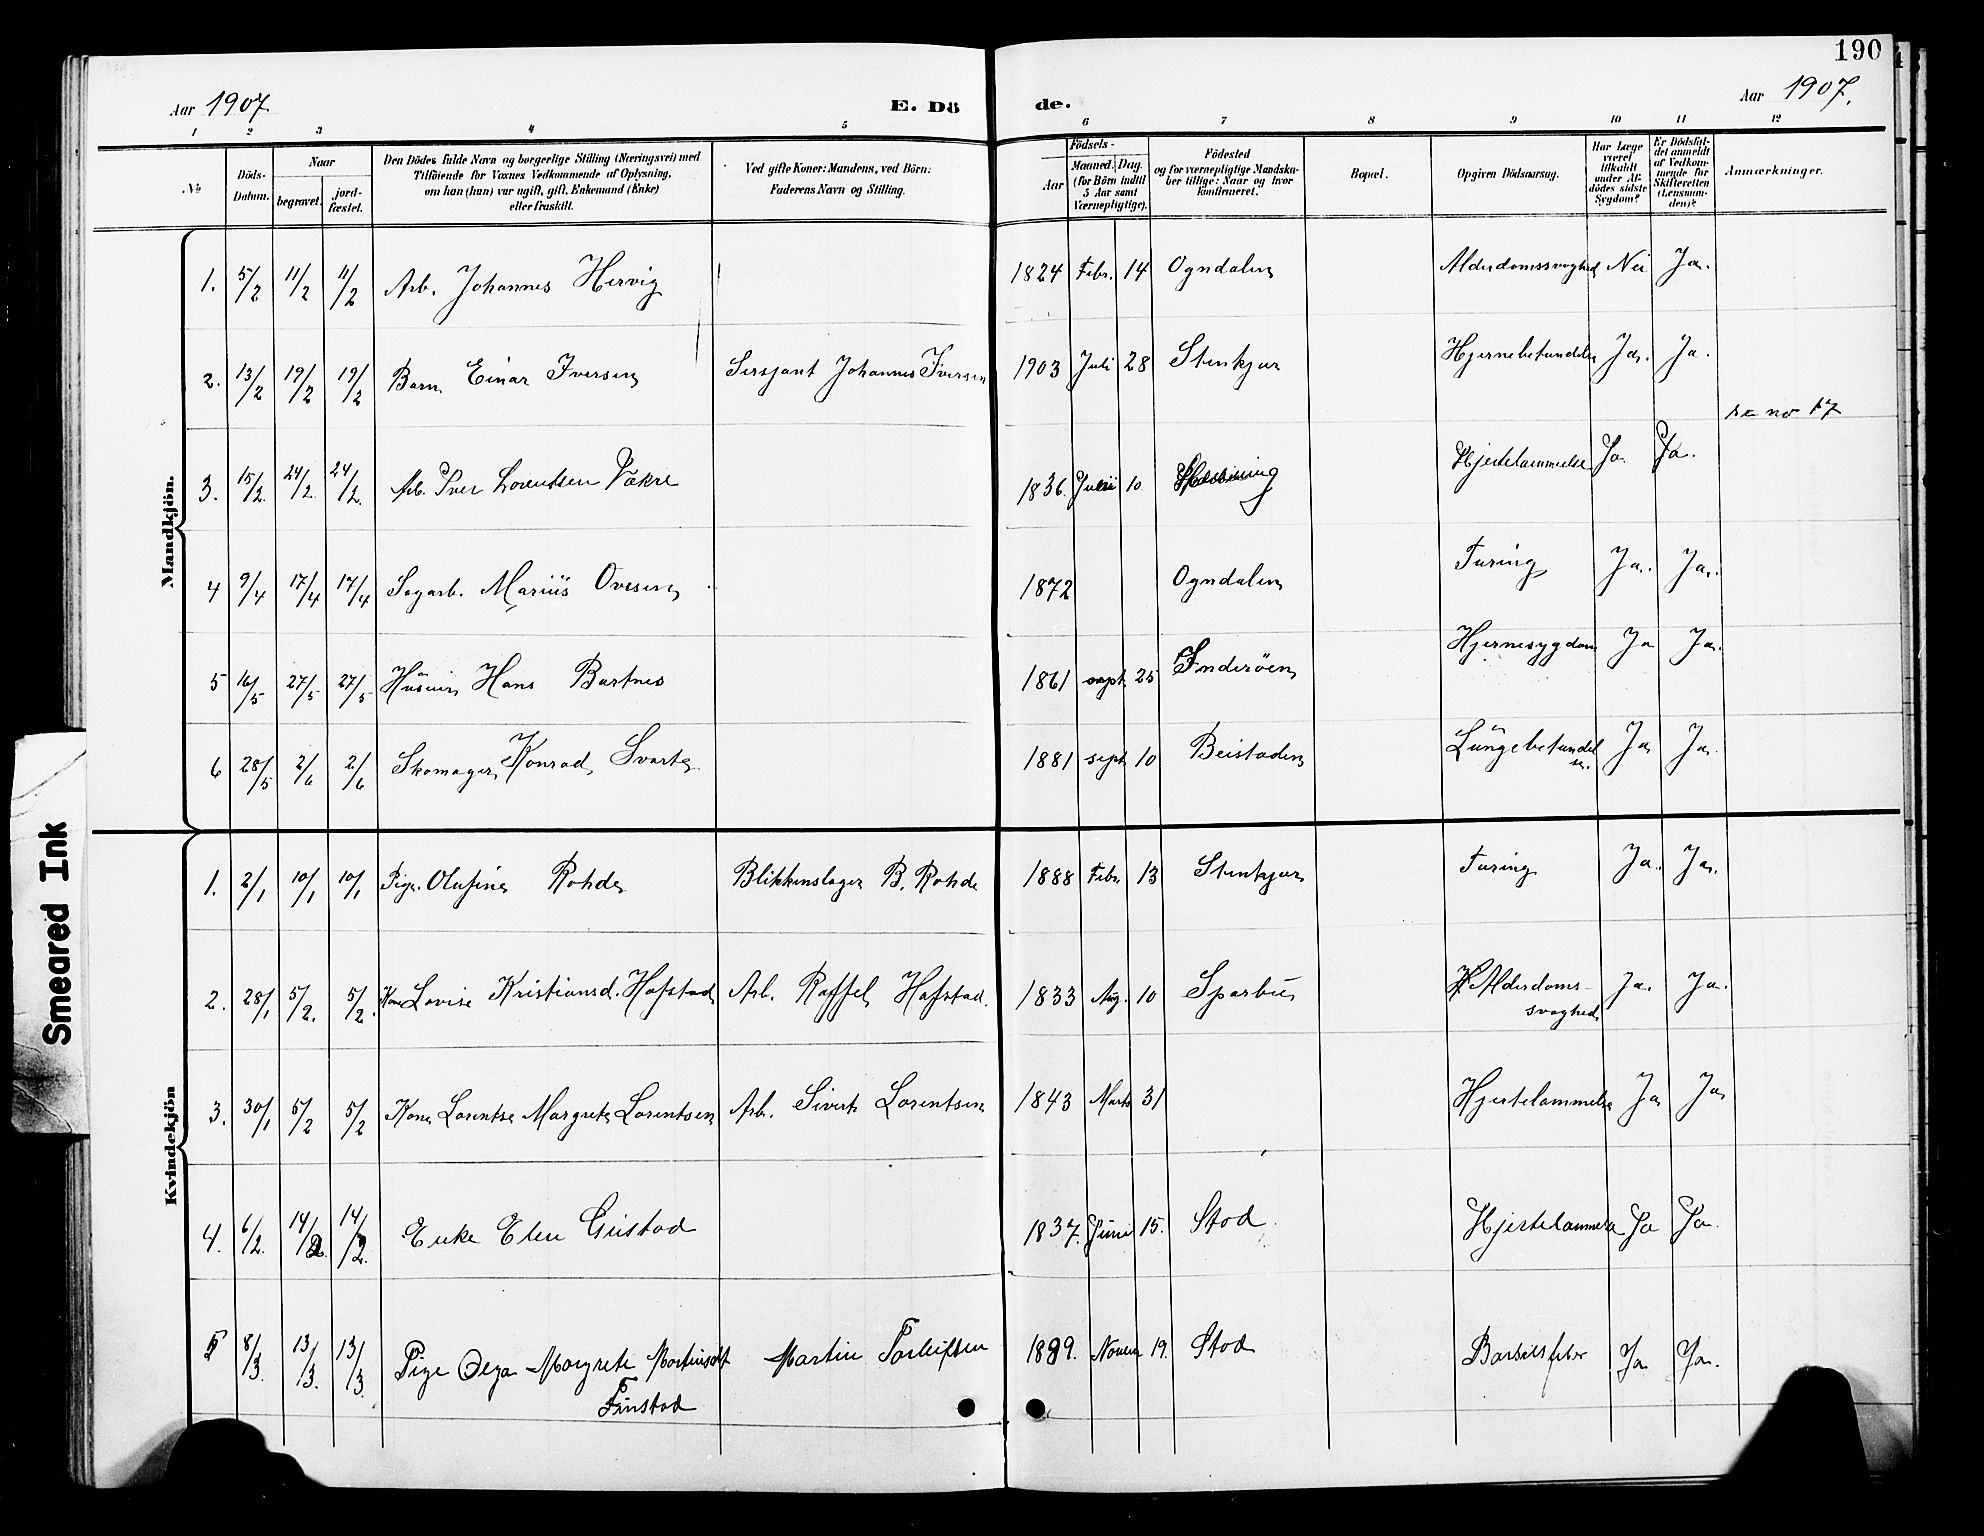 190
Aar 1907.
E. Dö
de.
Aar 1907.
1 2 3 4 5 6 7 8 9 10 11 12
№
Döds-Datum.
Naar
begravet.
jord-fæstet.
Den Dödes fulde Navn og borgerlige Stilling (Næringsvei) med
Tilföiende for Voxnes Vedkommende af Oplysning,
om han (hun) var ugift, gift, Enkemand (Enke)
eller fraskilt.
Ved gifte Koner: Mandens, ved Börn:
Faderens Navn og Stilling.
Födsels-
Aar
Maaned. Dag.
(for Börn indtil
5 Aar samt
Værnepligtige).
Födested
og for værnepligtige Mandska-
ber tillige: Naar og hvor
konfirmeret.
Bopæl.
Opgiven Dödsaarsag.
Har Læge
været
tilkaldt
under Af-
dödes sidste
Sygdom?
Er Dödsfal-
det anmeldt
af Vedkom-
mende for
Skifteretten
(Lensman-
den)?
Anmærkninger.
Mandkjön.
1. 5/2 11/2 11/2 Arb. Johannes Hervig 1824 Febr. 14 Ogndalen Alderdomssvaghed Nei Ja.
2. 13/2 19/2 19/2 Barn Einar Iversen Sersjant Johannes Iversen 1903 Juli 28 Stenkjær Hjernebetændelse Ja. Ja.
se no 17
3. 15/2. 24/2. 24/2. Arb. Iver Lorentsen Vækre 1836. 10 Hjertelammelse Ja. Ja.
4 9/4 17/4 17/4 Sagarb. Marius Ovesen 1872 Ogndalen Tæring Ja. Ja.
5 16/5 27/5 27/5 Husm. Hans Bartnes 1861 sept. 25 Inderöen Hjernesygdom Ja Ja.
6 28/5 2/6 2/6 Skomager Konrad Svarte 1881 sept 10 Beistaden Lungebetændel
se. Ja Ja.
Kvindekjön
1. 2/1 10/1 10/1 Pige Olufine Rohde Blikkenslager B. Rohde 1888 Febr. 13 Stenkjær Tæring Ja. Ja.
2. 28/1 5/2. 5/2. Kone Lovise Kristiansd. Hafstad Arb. Raffel Hafstad. 1833 Aug. 10 Sparbu Alderdoms-
svaghed Ja. Ja.
3. 30/1 5/2 5/2 Kone Lorentse Margrete Lorentsen Arb. Sivert Lorentsen 1843 Marts 31 Hjertelammelse Ja Ja
4. 6/2. 14/2. 14/2. Enke Elen Gustad 1837. Juni 15. Stod. Hjertelammelse Ja Ja.
5 8/3. 13/3. 13/3. Pige Olga Margrete Martinsdt
Finstad Martin Torleifsen 1889. Novem 19. Stod Barselsfeber Ja Ja.
Smeared Ink